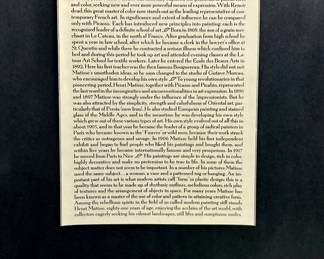 and color, seeking new and ever more powerful means of expression. With Renoir
dead, this great master of color now stands out as the leading representative of con-
temporary French art. In significance and extent of influence he can be compared
only with Picasso. Each has introduced new principles into painting; each is the
recognized leader of a definite school of art. Born in 1869, the son of a grain mer-
chant in Le Cateau, in the north of France. After graduation from high school he
spent a year in law school, after which he became a clerk in a lawyer's office at
St. Quentin and while there he contracted a serious illness which confined him to
bed and during this period he took up art and attended evening classes at the La
tour Art School for textile workers. Later he entered the Ecole des Beaux Arts in
1892. Here his first teacher was the then famous Bouguereau. His style did not suit
Matisse's unorthodox ideas, so he soon changed to the studio of Gustave Moreau,
who encouraged him to develop his own style. To young revolutionaries in that
pioneering period, Henri Matisse, together with Picasso and Picabia, represented
the last word in the incongruities and unconventionalities in art expression. In 1896
and 1897 Matisse was strongly under the influence of the Impressionists. But he
was also attracted by the simplicity, strength and colorfulness of Oriental art, par-
ticularly that of Persia
slaves of the Middle Ages, and in the meantime he was developing his own style
which grew out of these various types of art. His own style evolved out of all this in
about 1905, and in that year he became the leader of a group of radical painters in
Paris who became known as the 'Fauves' or wild men, because their work struck
the critics as outrageous and savage. In 1906 Matisse held his first independent
exhibit and began to find people who liked his paintings and bought them, and
within five years he became internationally famous and very prosperous. In 1917
he moved from Paris to Nice. His paintings are simple in design, rich in color,
highly decorative and make no pretension to be true to life. In some of them the
subject matter does not seem to be important. In a number of his pictures, Matisse
used the same subject... a woman, a vase and a patterned rug or hanging. An im-
portant part of his art is what modern artists call 'form' or plastic design; this is a
quality that seems to be made up of rhythmic outlines, melodious colors, rich play
of textures and the arrangement of objects in space. For many years Matisse has
been known as a master of the use of color and pattern in attaining creative form.
Among the rebellious spirits in the field of so called modern painting still stands
Henri Matisse, eighty-one years of age, enjoying the acclaim of the art world, with
collectors eagerly seeking his vibrant landscapes, still lifes and sumptuous nudes.